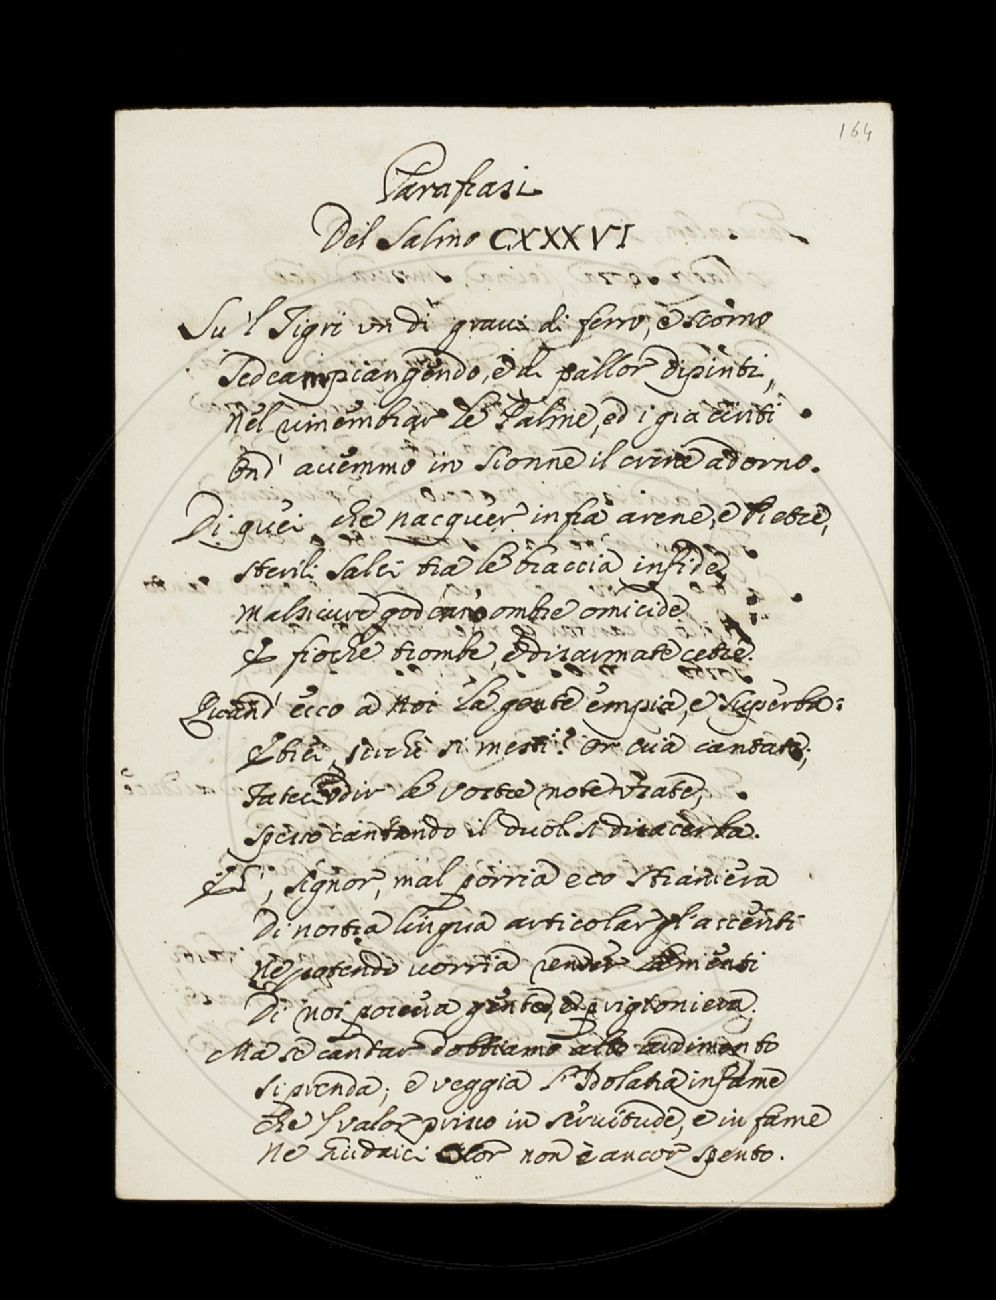 164
Parafrasi
Del Salmo CXXXVI
Su'l Tigri un dì gravi di ferro, e scorno
Sedeam piangendo, e di pallor dipinti,
Nel rimembrar le Palme, ed i già cinti
Ond' avemmo in Sionne il crine adorno.
Di quei che nacquer infra arene, e Pietre,
sterili salci tra le braccia infide,
malsicure godean ombre omicide
E fioche trombe, e disarmate cetre.
Quand' ecco a noi la gente empia, e superba:
E bei, perchè sì mesti? Or via cantate,
Fateci udir le vostre note usate,
spesso cantando il duol si disacerba.
Eh, signor, mal porria eco straniera
Di nostra lingua articolar gl'accenti
Ne potendo vorria render
Di noi povera gente, e prigioniera.
Ma se cantar dobbiamo ardimento
si prenda; e veggia l'Idolatra infame
che 'l valor privo in servitude, e in fame
Ne Giudaici Cor non è ancor spento.